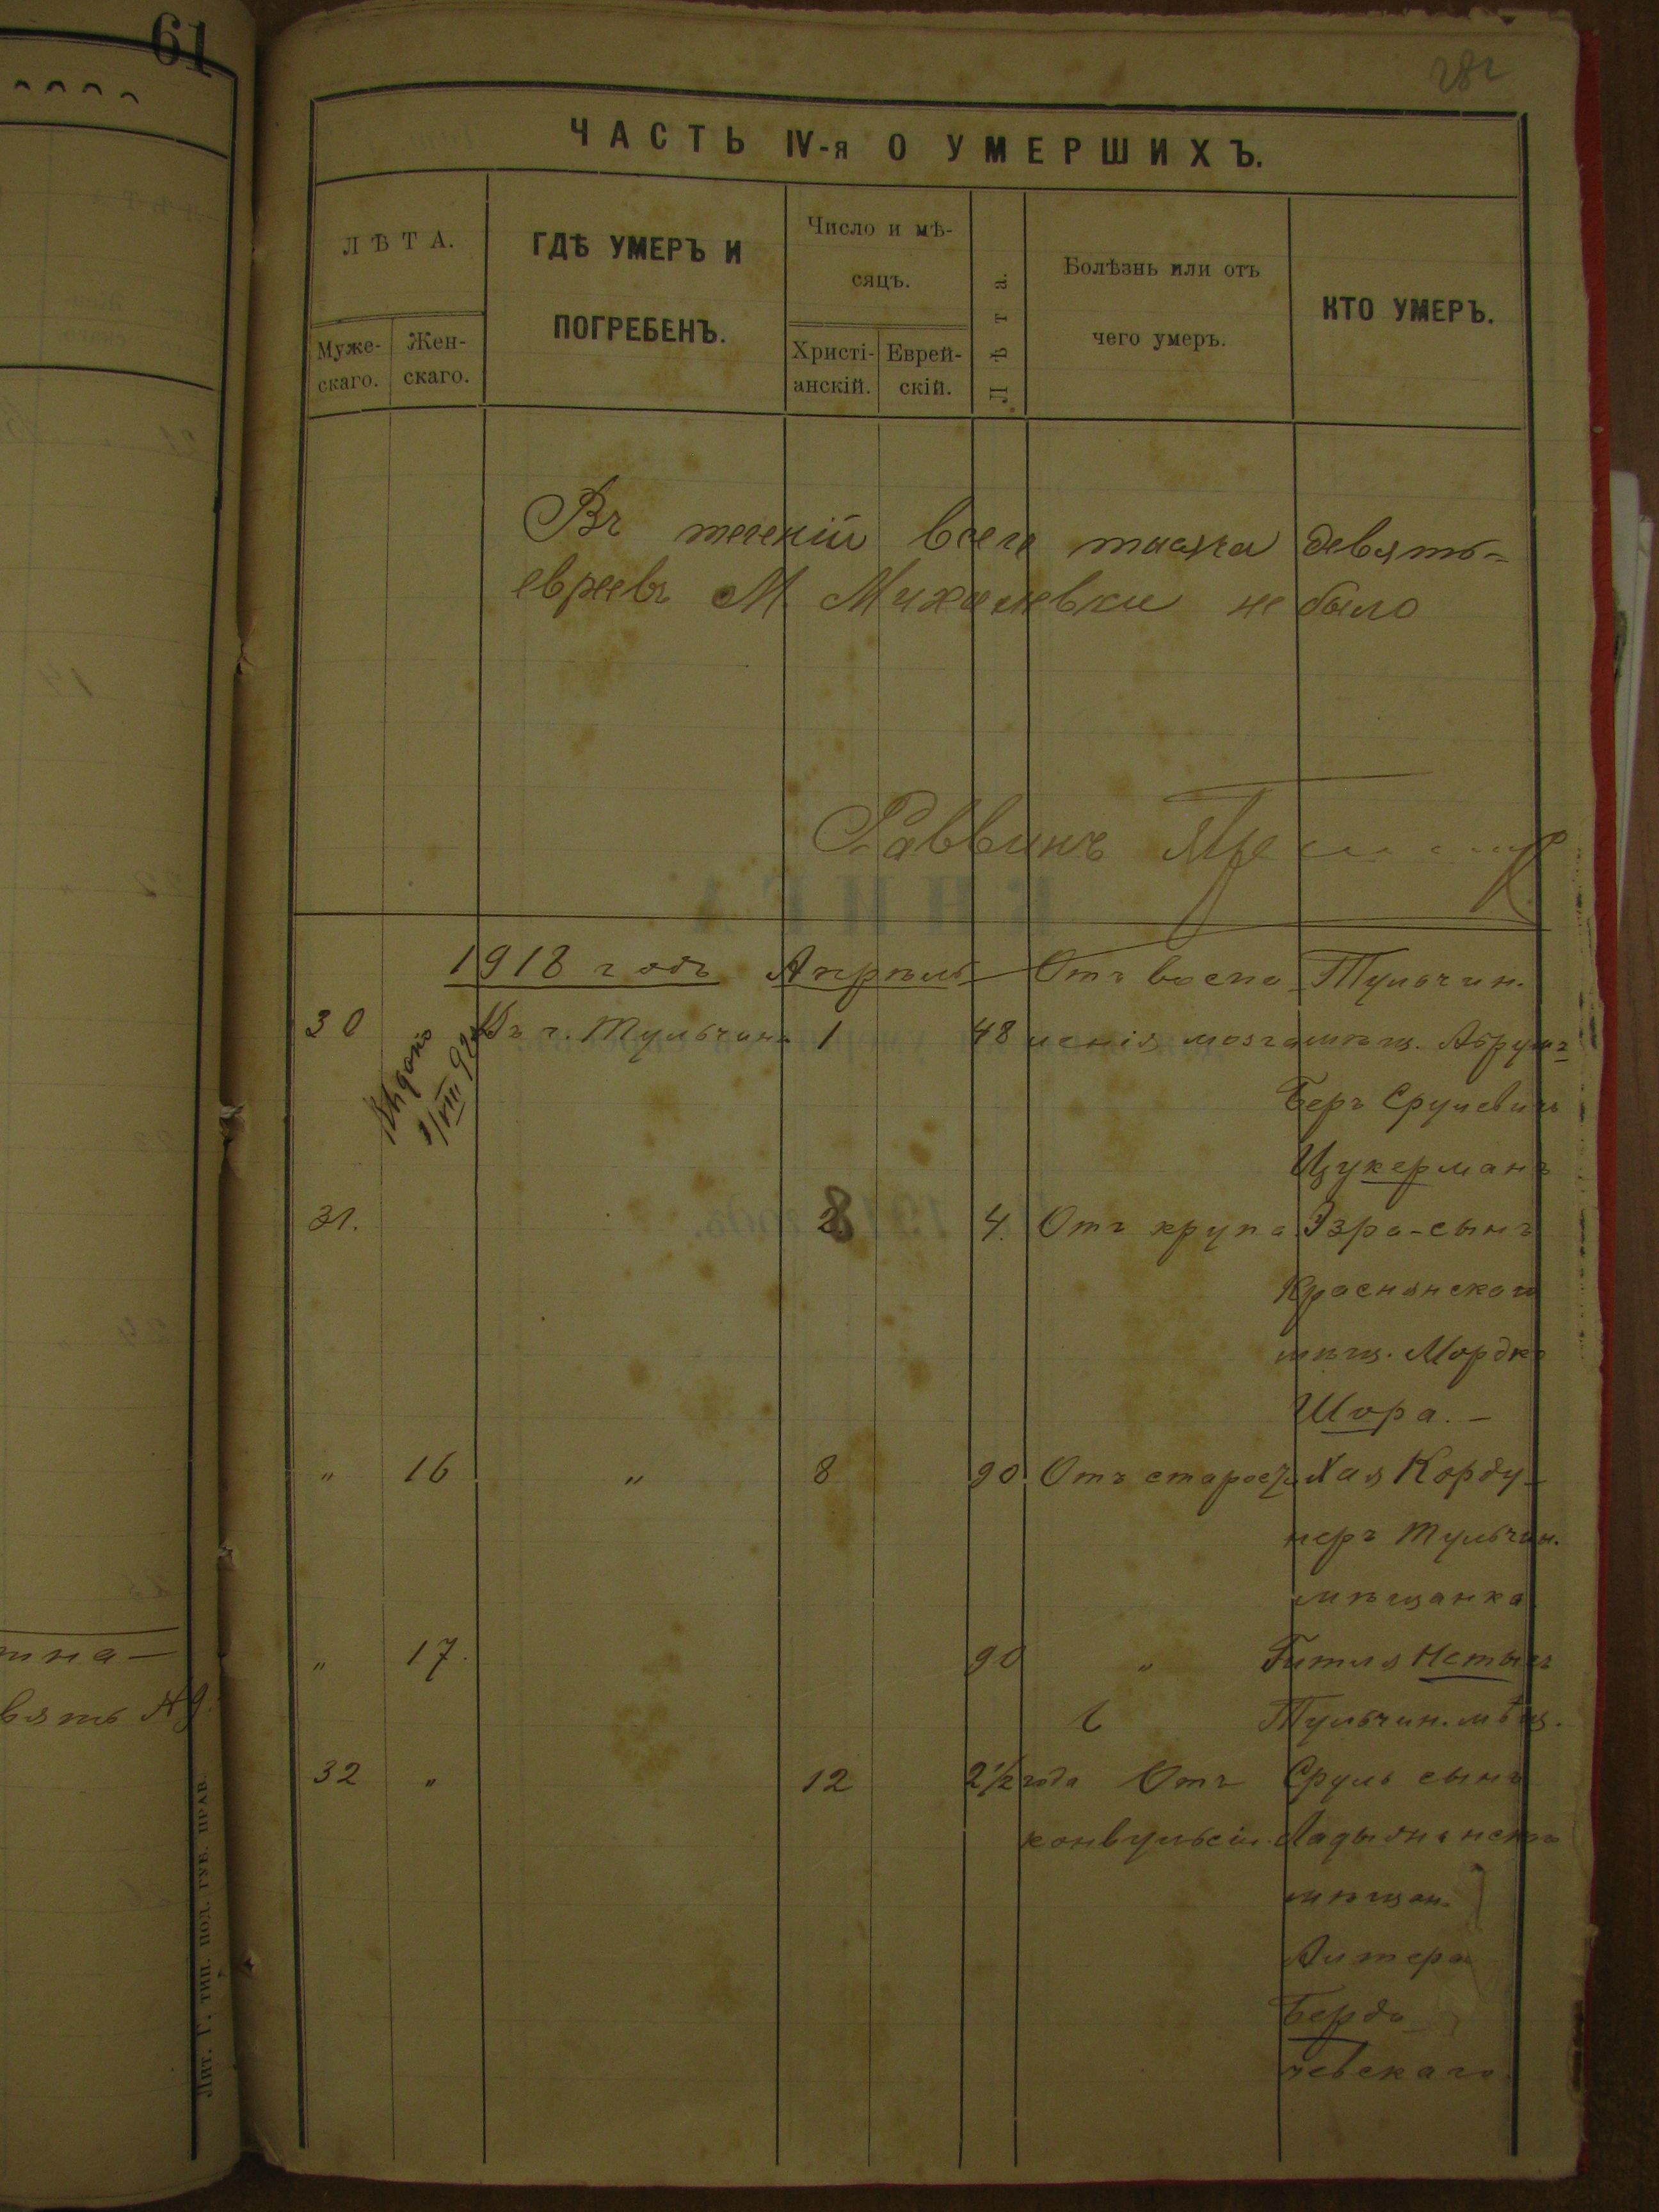 61
282
ЧАСТЬ IV-я О УМЕРШИХЪ.
ЛѢТА.
Муже-
скаго.
Жен-
скаго.
ГДѢ УМЕРЪ И
ПОГРЕБЕНЪ.
Число и мѣ-
сяцъ.
Христі-
анскій.
Еврей-
скій.
Лѣта.
Болѣзнь или отъ
чего умеръ.
КТО УМЕРЪ.
Въ теченіи всего девять-
евреевъ М. Михалевки не было
Раввинъ
1918 годъ Апрѣль Отъ воспа Тульчин.
30 Въ г. Тульчинѣ 1 48 ленія мозга мѣщ. Абрумъ
Беръ Срулевичъ
Цукерманъ
31. 8 4. Отъ крупа Эзра-сынъ
Краснянскаго
мѣщ. Мордко
Шора. –
" 16 " 8 90 Отъ старост. Хая Корду-
неръ Тульчин.
мѣщанка
" 17. 90 " Гитля
Тульчин. мѣщ.
32 " 12 2½ года Отъ Сруль сынъ
конвульсіи Ладыжинскаго
мѣщан.
Алтера
Берди
чевскаго
Лит. Г. тип. под. губ. прав.